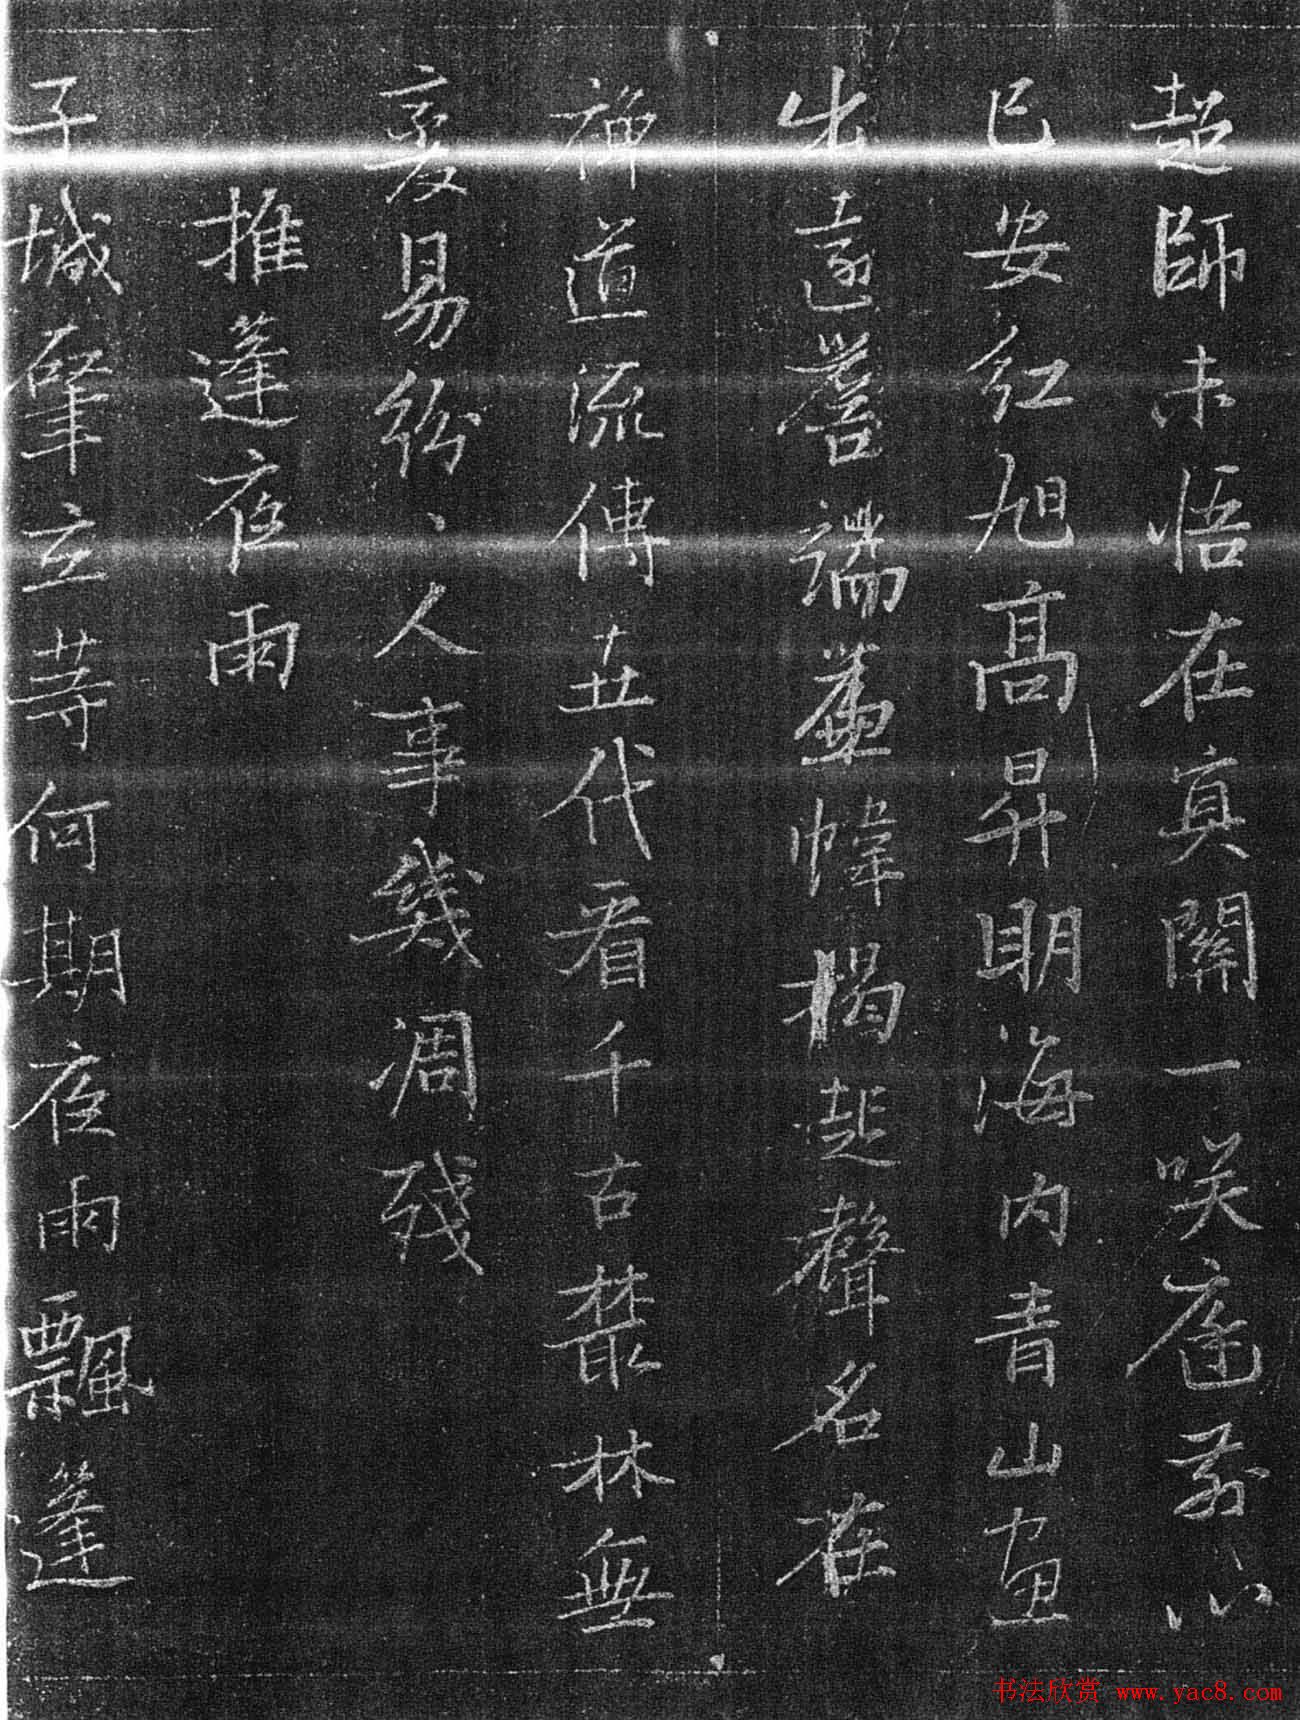 超師未悟在真關一咲庭前心
已安紅旭高昇明海內青山画
出遠詹端簾幃揭起聲名在
禪道流傳五代看千古叢林無
變易紛〻人事幾凋殘
推蓬夜雨
子城肇立等何期夜雨飄蓬
书法欣赏 www.yac8.com